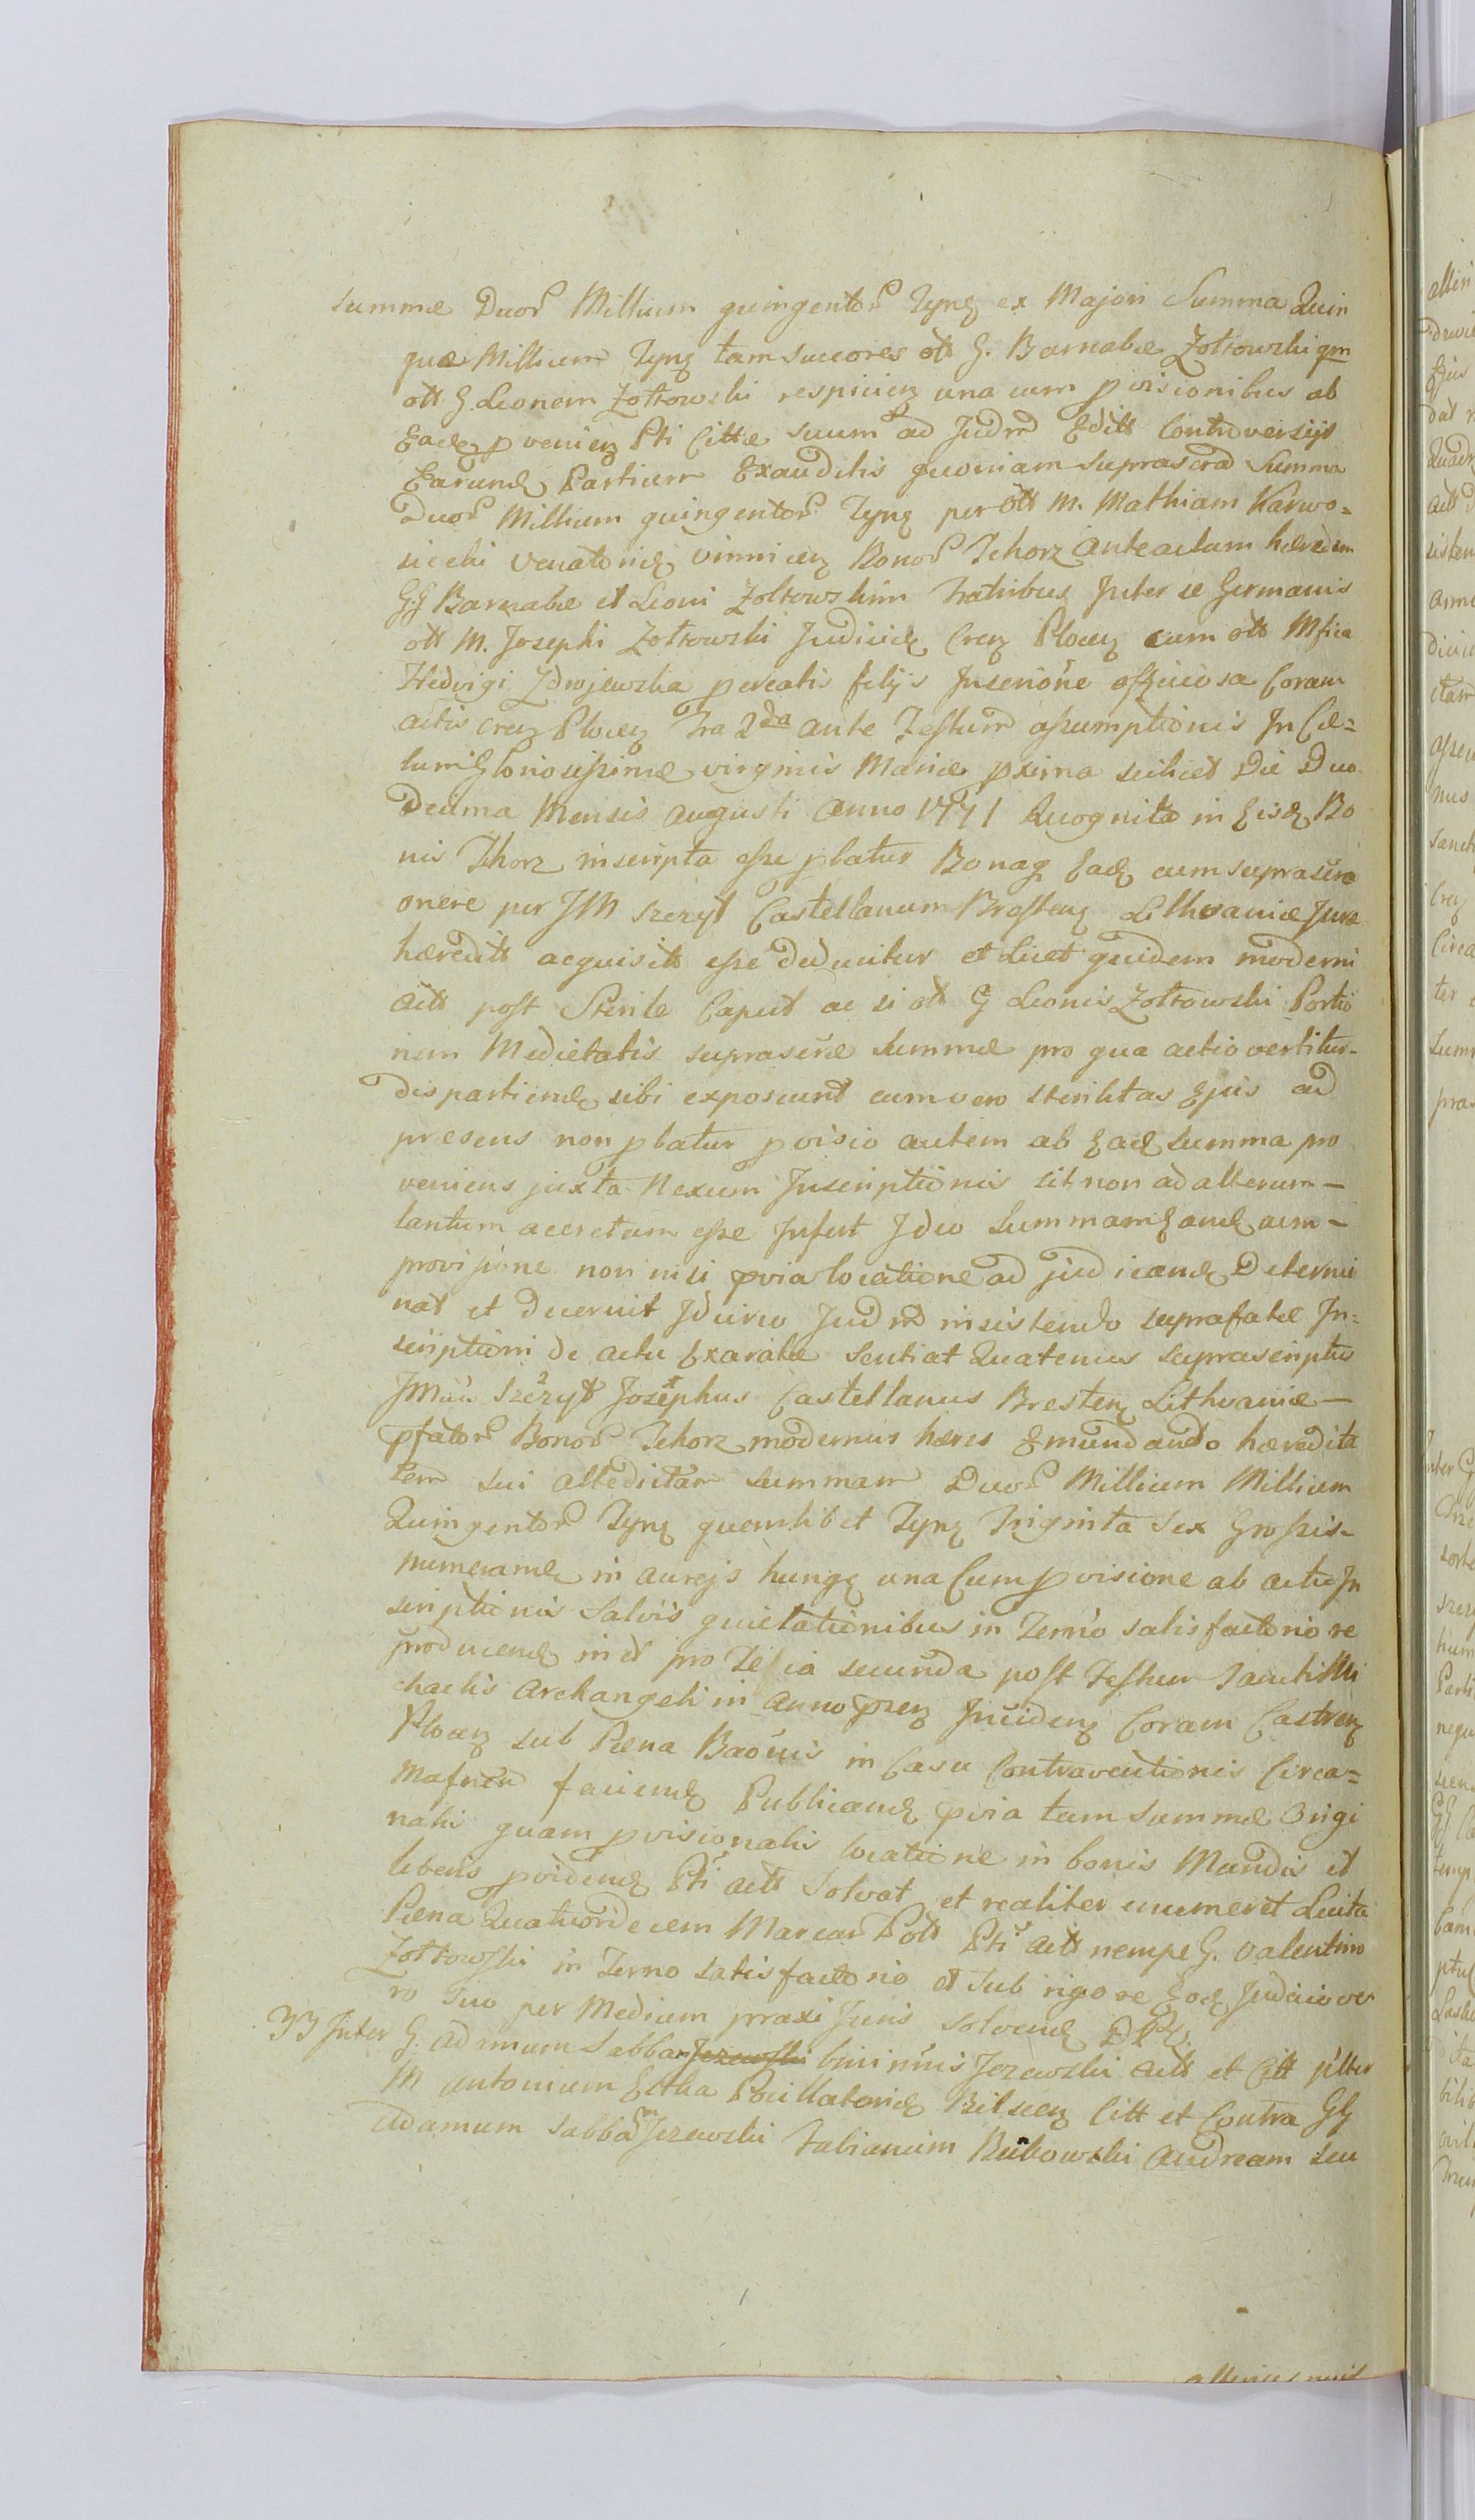 summæ Duor Millium quingentor Tynf ex Majori Summa Quin
quæ Millium Tynf tam succores ott G. Barnabæ Zołtowski qm
ott G. Leonem Zołtowski respicien una cum pvisionibus ab
Eadem pvenien Pti Cittæ suum ad Judm Editt Controversijs
Earund Partium Exauditis quoniam suprascra Summa
Duor Millium quingentor Tynf per ott M. Mathiam Karwo-
siecki Venatorid vinnicen Bonor Tchorz Anteactum hæredem
GG Barnabæ et Leoni Zołtowskim Fratribus Inter se Germanis
ott M. Josephi Zołtowski Judicid Cren Plocen cum ott Mfica
Hedvigi Zdwojewska pcreatis filijs Inscrione offiuiosa Coram
actis cren Plocen Fra 2da ante Festum assumptionis In Cæ=
lum Gloriosissimæ virginis Mariæ pxima scilicet Die Duo
Decima Mensis Augusti Anno 1771 Recognita in Eisd Bo
nis Tchorz inscripta esse pbatur Bonaq Ead cum suprascro
onere per JM Szczyt Castellanum Bresten Lithvaniæ Jure
hæredtt acquisitt esse deducitur et Licet quidem moderni
actt post Sterile Caput ac si ott G Leonis Zołtowski Portio
nem Medietatis suprascræ Summæ pro qua actio vertitur-
dispartiend sibi exposcunt cum vero sterilitas Ejus ad
presens non pbatur pvisio autem ab Ead summa pro
veniens juxta Nexum Inscriptionis sit non ad alterum-
tantum accretam esse Infert Ideo Summam Eand cum-
provisione non nisi pvia locatione ad judicand Determi
nat et Decernit Idcirco Judm insistendo suprafatæ In=
scriptioni de actu Exaratæ Sentiat Quatenus suprascriptus
JM Szczyt Josephus Castellanus Bresten Lithvaniæ-
pfator Bonor Tchorz modernus hæres Emundando hæredita
tem sui attedictam summam Duor Millium Millium
Quingentor Tynf quemlibet Tynf Triginta Sex Grossis-
numerand in aureis hungg una Cum pvisione ab actu In
scriptionis Salvis quietationibus in Termo satisfactorio re
producend in et pro Feria secunda post Festum Sancti Mi
chaelis Archangeli in Anno pzen Inciden Coram Castren
Plocen sub Pæna Baonis in Casu Contraventionis Circa=
faciend Publicand pvia tam Summæ Origi
nalis quam pvisionalis locatione in bonis Mundis et
liberis pvidend Pti actt Solvat et realiter enumeret Luita
Pæna Quatuordecem Marcar Poll Pti actt nempe G. Valentino
Zołtowski in Termo satisfactorio et sub rigore Eod Judicio ve
ro Suo per Medium praxi Juris Solvend DPD.
33 Inter G. Adamum Sabbam Jezewski bini nris Jezewski actt et Citt Itter
M Antonium Pocillatorid Bilscen Citt et Contra GG
Adamum Sabbam Jezewski Fabianum Bukowski Andream seu